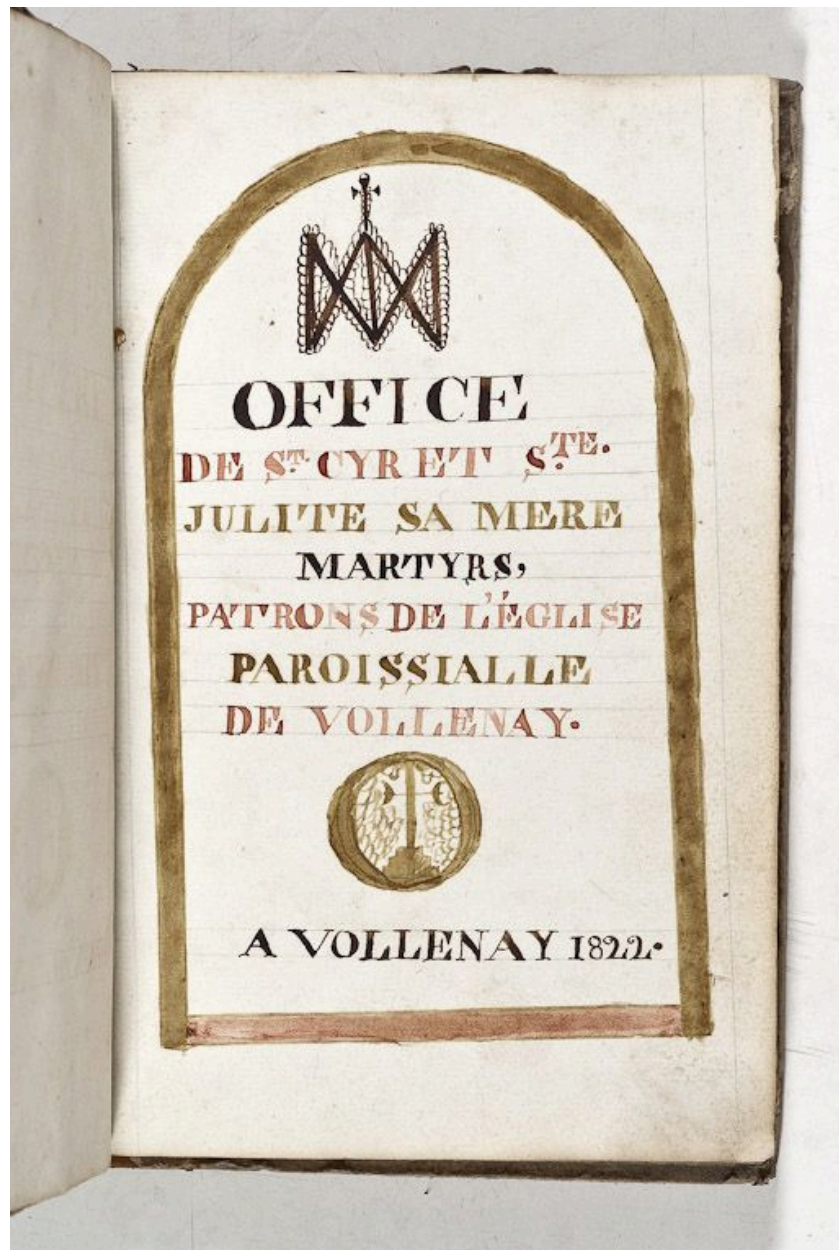 OFFICE
DE ST. CYR ET STE.
JULITE SA MERE
MARTYRS,
PATRONS DE L'ÉGLISE
PAROISSIALLE
DE VOLLENAY.
A VOLLENAY 1822.